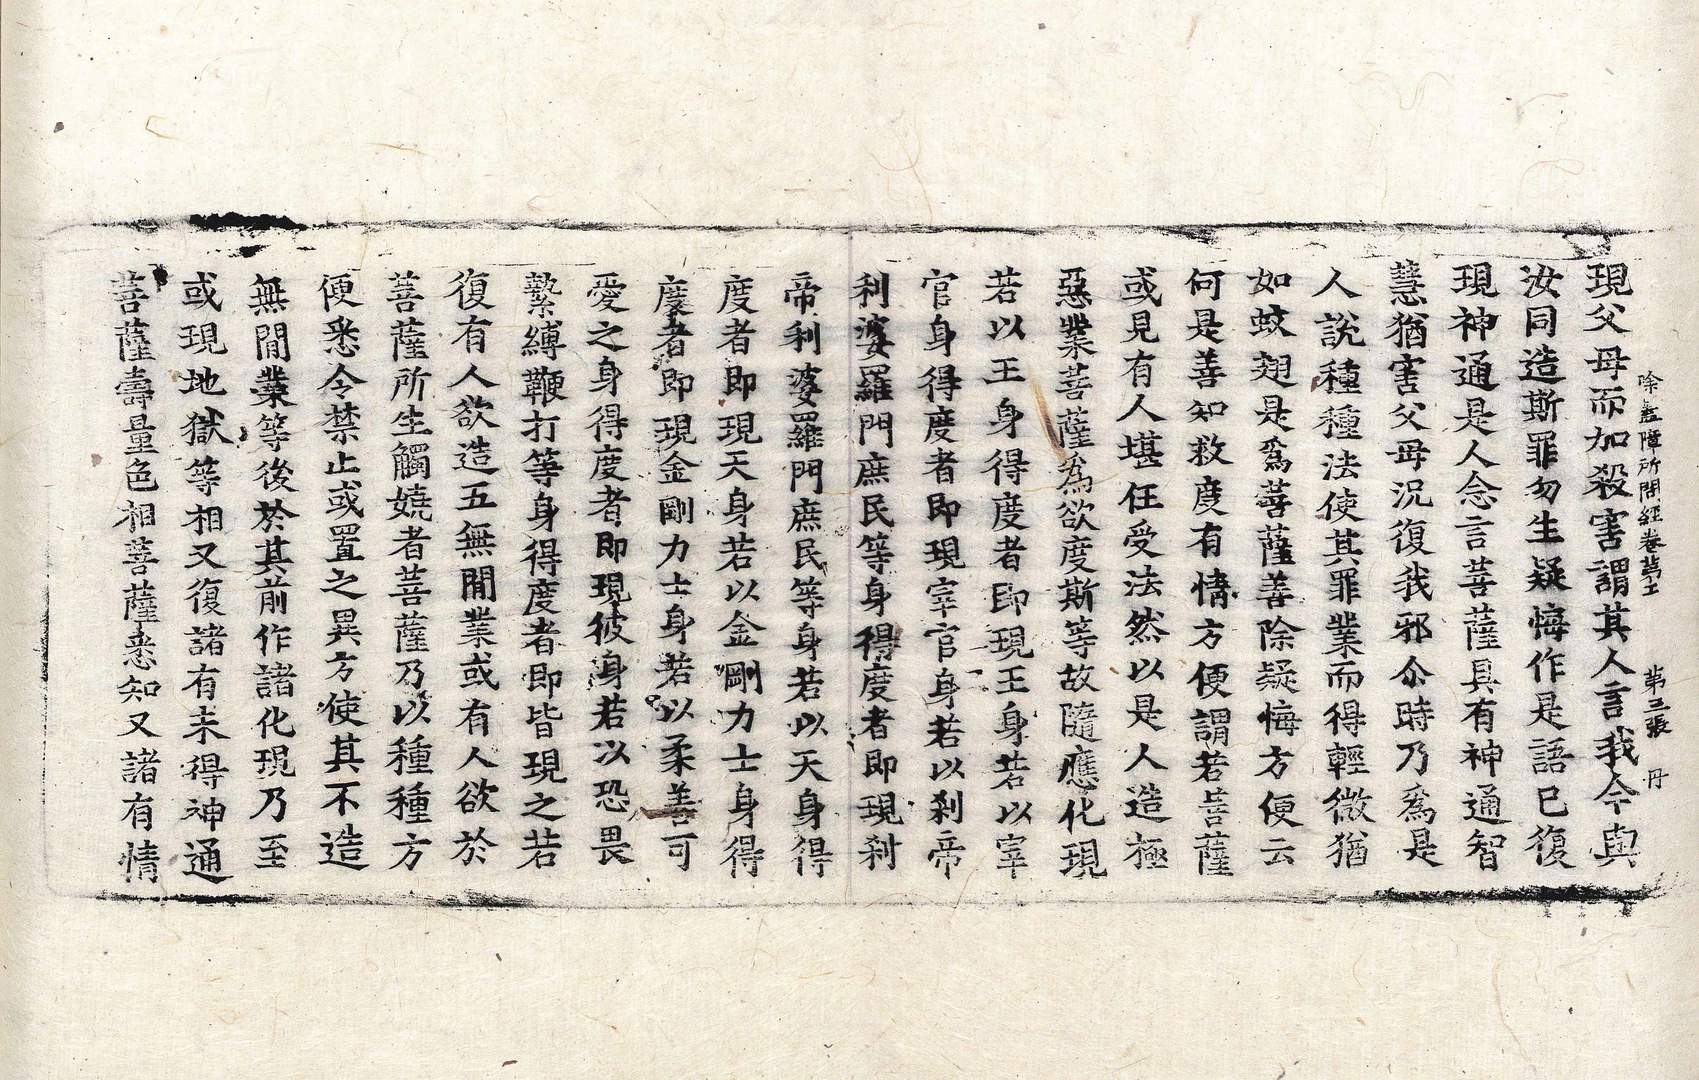 除蓋障所問經卷第七　第三張　丹
現父母而加殺害謂其人言我今與
汝同造斯罪勿生疑悔作是語已復
現神通是人念言菩薩具有神通智
慧猶害父母況復我邪尒時乃爲是
人說種種法使其罪業而得輕微猶
如蚊翅是爲菩薩善除疑悔方便云
何是善知救度有情方便謂若菩薩
或見有人堪任受法然以是人造極
惡業菩薩爲欲度斯等故隨應化現
若以王身得度者即現王身若以宰
官身得度者即現宰官身若以刹帝
利婆羅門庶民等身得度者即現刹
帝利婆羅門庶民等身若以天身得
度者即現天身若以金剛力士身得
度者即現金剛力士身若以柔善可
愛之身得度者即現彼身若以恐畏
縶縛鞭打等身得度者即皆現之若
復有人欲造五無間業或有人欲於
菩薩所生觸嬈者菩薩乃以種種方
便悉令禁止或置之異方使其不造
無間業等後於其前作諸化現乃至
或現地獄等相又復諸有未得神通
菩薩壽量色相菩薩悉知又諸有情